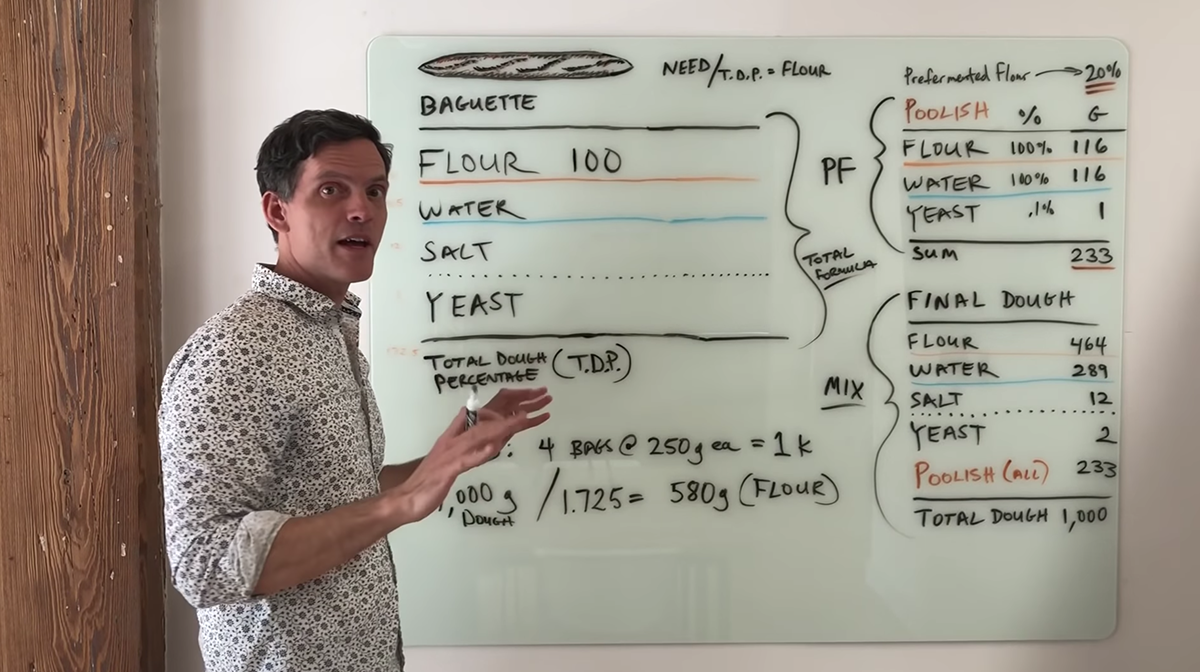 BAGUETTE
NEED/T.D.P. = FLOUR
FLOUR 100
WATER
SALT
YEAST
TOTAL DOUGH PERCENTAGE (T.D.P.)
: 4 BAGS @ 250g ea = 1k
1,000 g DOUGH /1.725 = 580g (FLOUR)
TOTAL FORMULA
PF
Prefermented Flour → 20%
POOLISH % G
FLOUR 100% 116
WATER 100% 116
YEAST .1% 1
SUM 233
MIX
FINAL DOUGH
FLOUR 464
WATER 289
SALT 12
YEAST 2
POOLISH (ALL) 233
TOTAL DOUGH 1,000